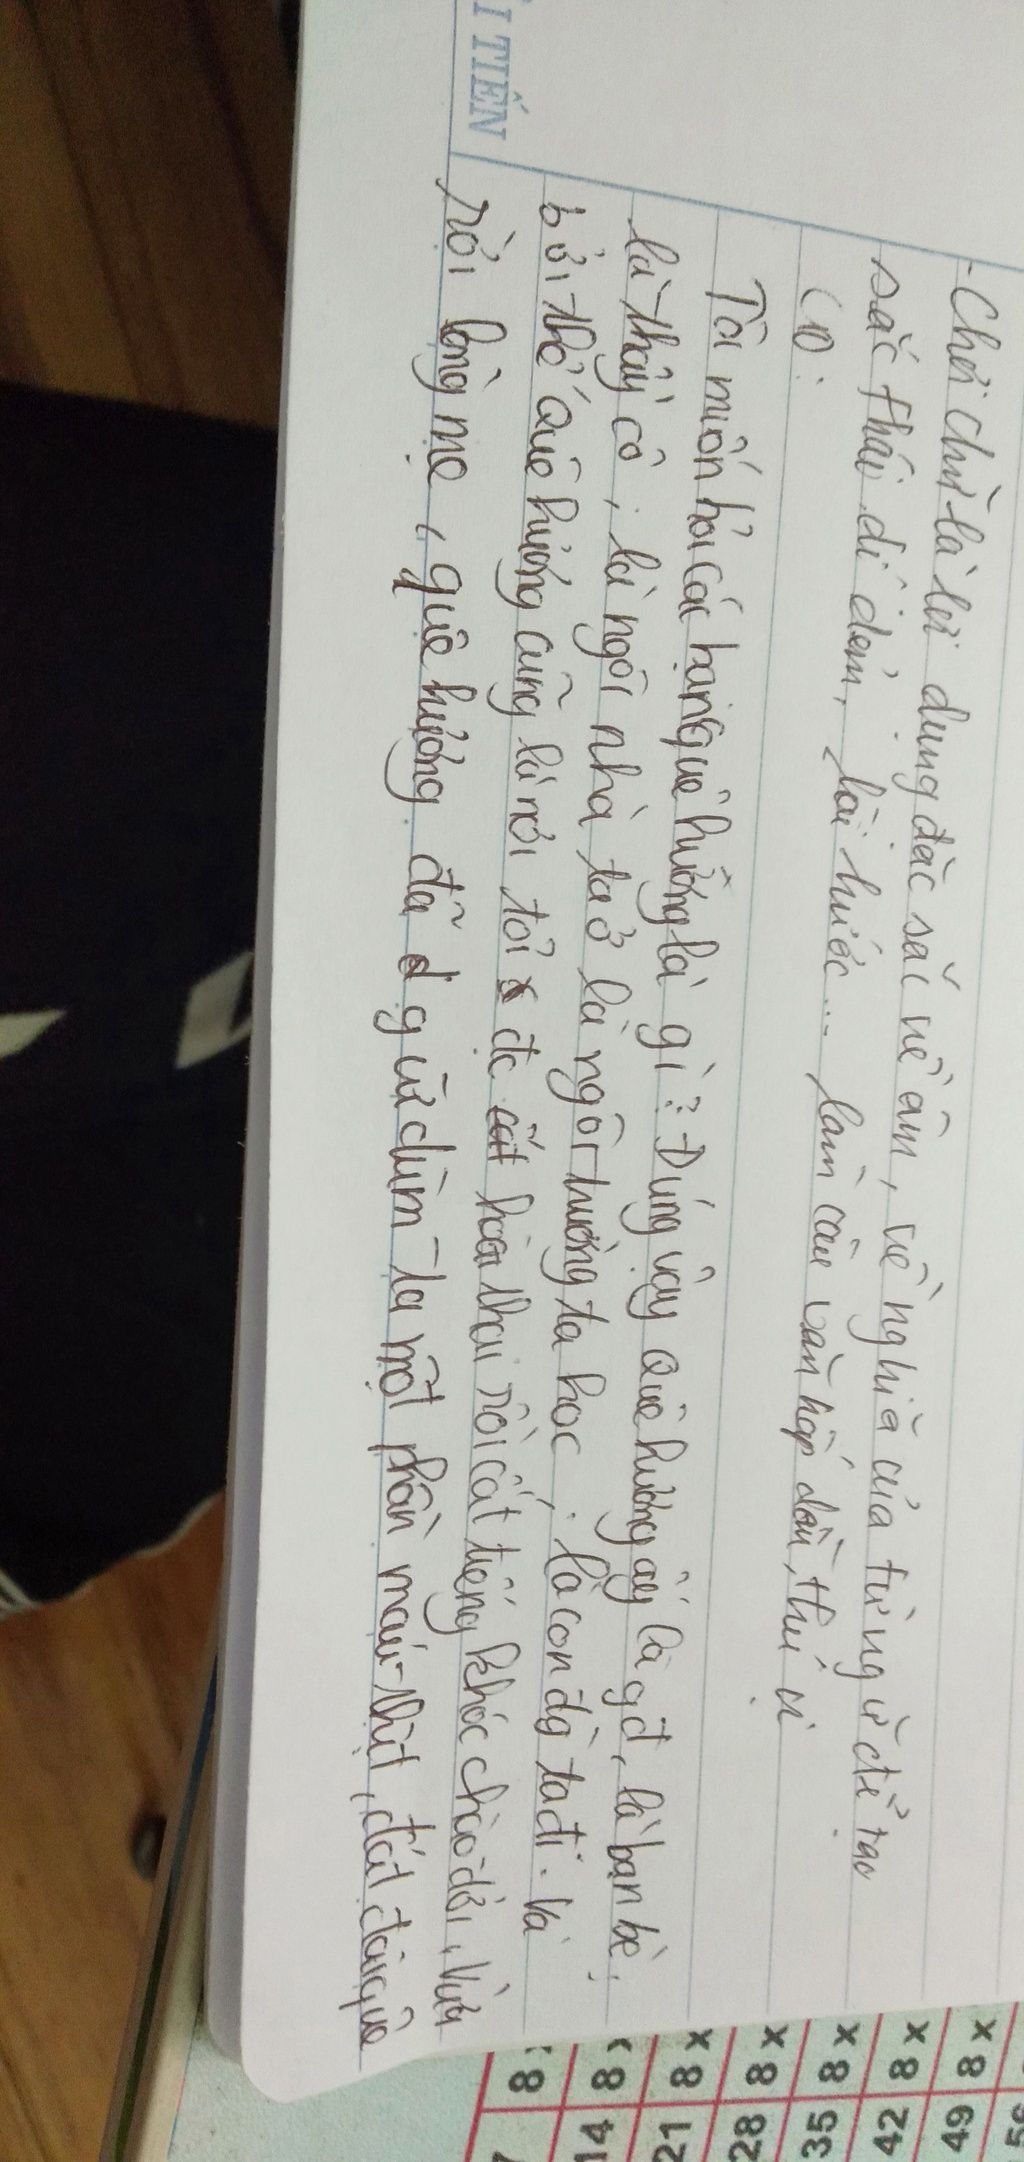 - Chơi chữ là lợi dụng đặc sắc về âm, về nghĩa của từ ngữ để tạo
sắc thái dí dỏm, hài hước... làm câu văn hấp dẫn, thú vị
C10:
Tôi muốn hỏi các bạn quê hương là gì? Đúng vậy quê hương ấy là gđ, là bạn bè,
là thầy cô, là ngôi nhà ta ở là ngôi trường ta học, là con đg ta đi. Và
bởi thế quê hương cũng là nơi tôi đc hoài thai rồi cất tiếng khóc chào đời, Vừa
rời lòng mẹ, quê hương đã giữ dùm ta một phần máu thịt, đất đai quê
I TIẾN
8 x
8 x
8 x
8 x
8 x
49
42
35
28
21
14